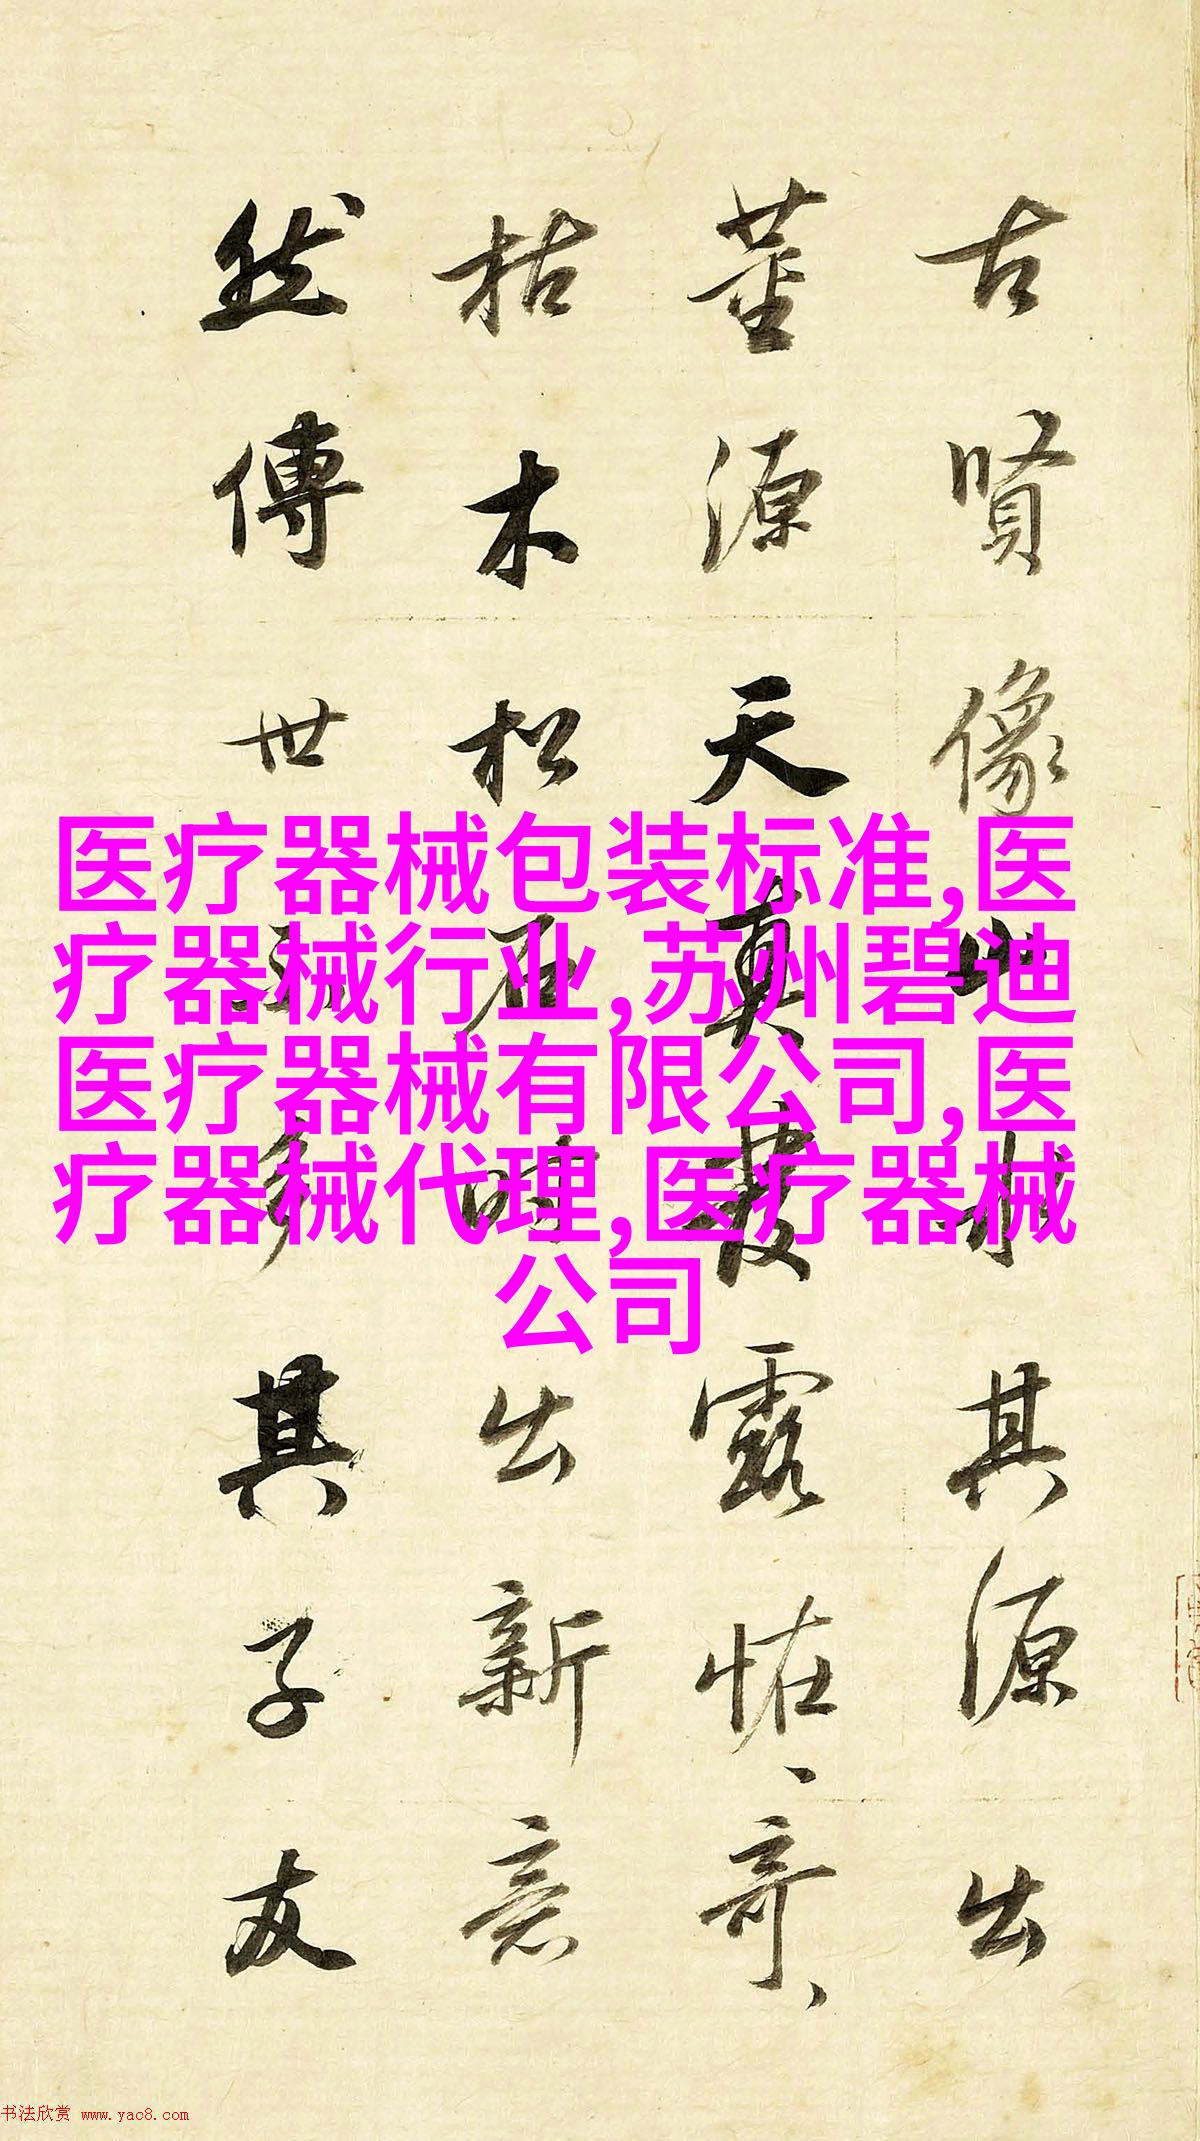 古賢像山水其源出
董源天真發露恠、奇、
枯木松石時出新意
然傳世多其子友
医疗器械包装标准,医
疗器械行业,苏州碧迪
医疗器械有限公司,医
疗器械代理,医疗器械
公司
书法欣赏 www.yac8.com